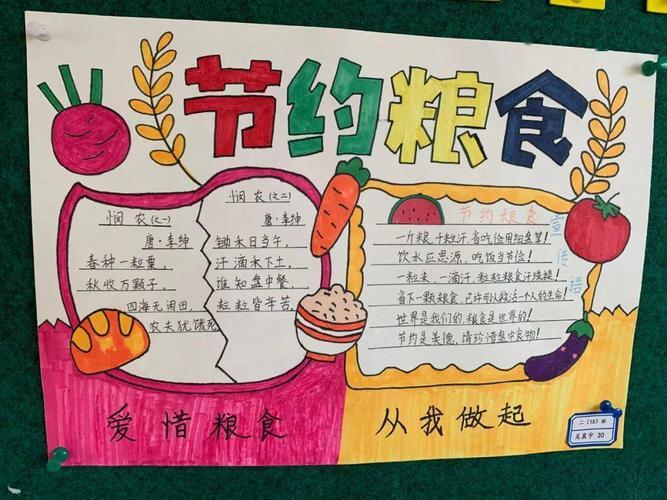 节约粮食
悯 农(之一)
唐·李绅
春种一粒粟,
秋收万颗子。
四海无闲田,
农夫犹饿死
悯 农(之二)
唐·李绅
锄禾日当午,
汗滴禾下土。
谁知盘中餐,
粒粒皆辛苦。
节约粮食
宣传语
一斤粮,千粒汗,省吃俭用细盘算!
饮水应思源,吃饭当节俭!
一粒米,一滴汗,粒粒粮食汗珠换!
省下一颗粮食,也许可以救活一个人的生命!
世界是我们的,粮食是世界的!
节约是美德,请珍惜盘中食物!
爱惜粮食
从我做起
二(15)班
30